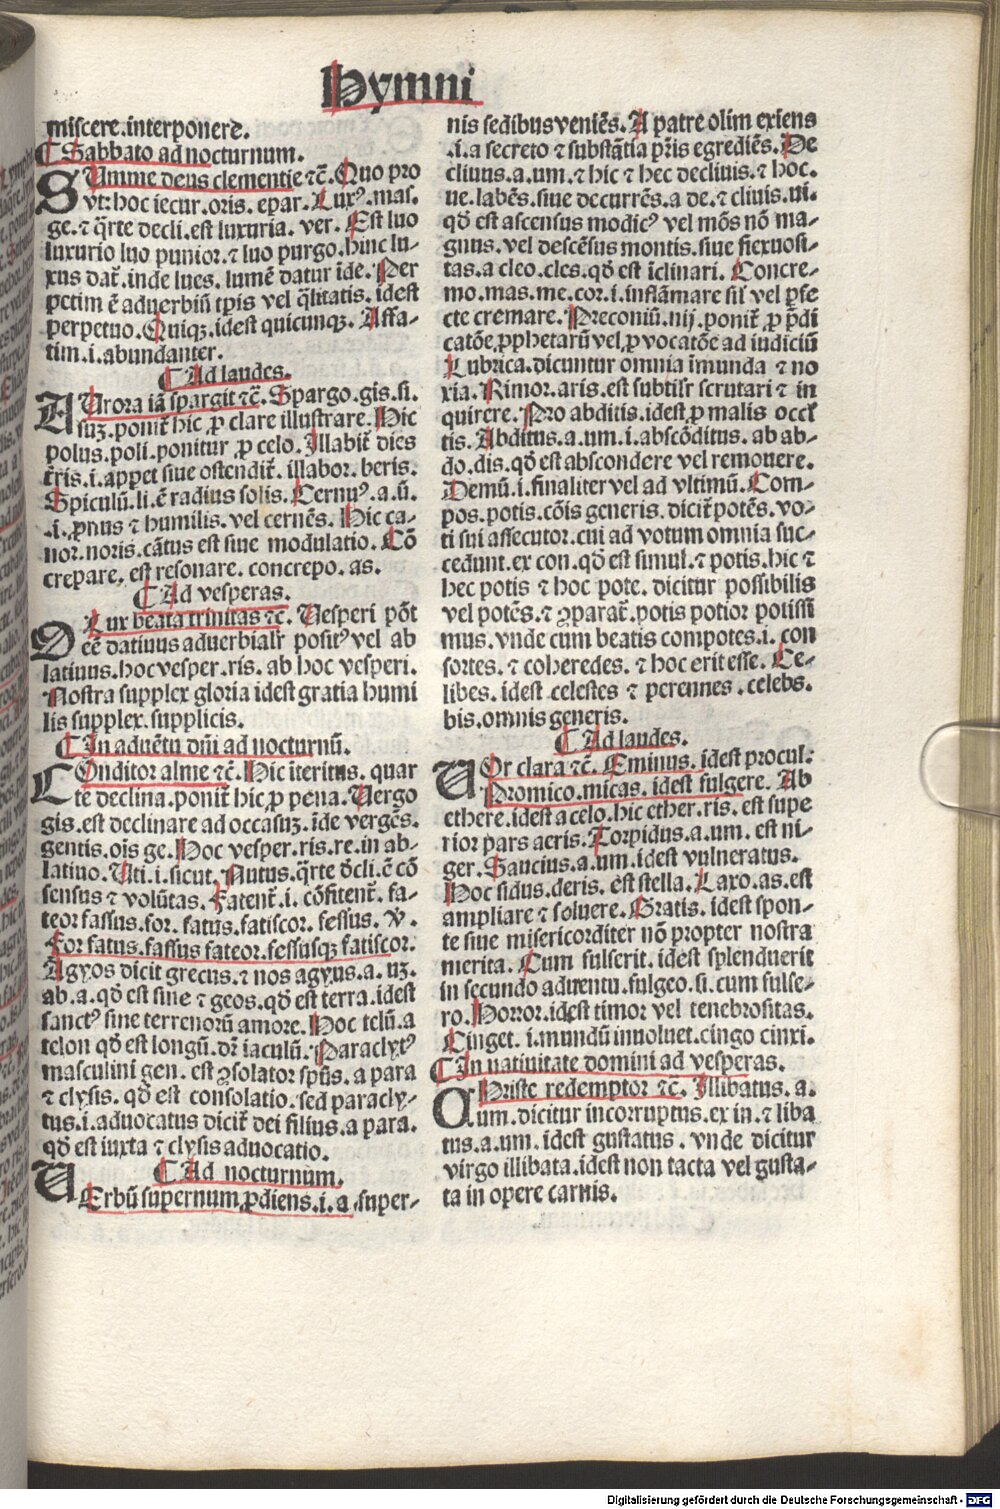 Hymni
miscere.interponere.
¶ Sabbato ad nocturnum.
SUmme deus clementie ⁊c̄. Quo pro
vt: hoc iecur.oris. epar. Luxꝰ.mas.
ge.⁊ q̄rte decli.est luxuria. ver. Est luo
luxurio luo punior.⁊ luo purgo.hinc lu-
xus dat̄.inde lues. lumē datur īde. Per
petim ē aduerbiū tp̄is vel q̄litatis. idest
perpetuo.Quiqꝫ.idest quicunqꝫ. Affa-
tim.i.abundanter.
¶ Ad laudes.
AUrora iā spargit ⁊c̄. Spargo.gis.si.
suꝫ.ponit̄ hic ꝓ clare illustrare. Hic
polus.poli.ponitur ꝓ celo. Illabit̄ dies
t̄ris.i.appet siue ostendit̄. illabor.beris.
Spiculū.li.ē radius solis. Cernuꝰ.a.ū.
.i.ꝓnus ⁊ humilis. vel cernēs. Hic ca-
nor.noris.cātus est siue modulatio. Cō
crepare. est resonare. concrepo.as.
¶ Ad vesperas.
O Lux beata trinitas ⁊c̄. Uesperi pōt
eē datiuus aduerbialr̄ positꝰ vel ab
latiuus.hoc vesper.ris. ab hoc vesperi.
Nostra supplex gloria idest gratia humi
lis supplex.supplicis.
¶ In aduētu dn̄i ad nocturnū.
COnditor alme ⁊c̄. Hic īteritus. quar
te declina.ponit̄ hic ꝓ pena. Uergo
gis.est declinare ad occasuꝫ.īde vergēs.
gentis.oīs ge. Hoc vesper.ris.re.in ab-
latiuo. Uti.i.sicut. Nutus.q̄rte d̄cli.ē cō
sensus ⁊ volūtas. Fatent̄.i.cōfitent̄.fa-
teor fassus.for. fatus.fatiscor. fessus. ꝟ.
For fatus.fassus fateor.fessusqꝫ fatiscor.
Agyos dicit grecus.⁊ nos agyus.a.uꝫ.
ab.a.qd̄ est sine ⁊ geos.qd̄ est terra.idest
sanctꝰ sine terrenorū amore. Hoc telū.a
telon qd̄ est longū.dr̄ iaculū. Paraclytꝰ
masculini gen. est ꝯsolator sp̄ūs.a para
⁊ clysis. qd̄ est consolatio.sed paracly-
tus.i.aduocatus dicit̄ dei filius.a para.
qd̄ est iuxta ⁊ clysis aduocatio.
¶ Ad nocturnum.
UErbū supernum ꝓdiens.i.a.super-
nis sedibus veniēs. A patre olim exiens
.i.a secreto ⁊ substātia pr̄is egrediēs. De
cliuus.a.um.⁊ hic ⁊ hec decliuis.⁊ hoc.
ue.labēs.siue decurrēs.a de.⁊ cliuis.ui.
qd̄ est ascensus modicꝰ vel mōs nō ma-
gnus.vel descēsus montis.siue flexuosi-
tas.a cleo.cles.qd̄ est īclinari. Concre-
mo.mas.me.cor.i.inflāmare sil̄ vel ꝑfe
cte cremare. Preconiū.nij.ponit̄ ꝓ p̄di
catōe.ꝓphetarū vel.ꝓ vocatōe ad iudiciū
Lubrica.dicuntur omnia īmunda ⁊ no
xia. Rimor.aris.est subtilr̄ scrutari ⁊ in
quirere. Pro abditis.idest ꝓ malis occl̄
tis. Abditus.a.um.i.abscōditus. ab ab-
do.dis.qd̄ est abscondere vel remouere.
Demū.i.finaliter vel ad vltimū. Com-
pos.potis.cōis generis. dicit̄ potēs.vo-
ti sui assecutor.cui ad votum omnia suc
cedunt.ex con.qd̄ est simul.⁊ potis.hic ⁊
hec potis ⁊ hoc pote. dicitur possibilis
vel potēs.⁊ ꝯparat̄.potis potior potissi
mus.vnde cum beatis compotes.i. con
sortes. ⁊ coheredes. ⁊ hoc erit esse. Ce-
libes. idest celestes ⁊ perennes .celebs.
bis.omnis generis.
¶ Ad laudes.
UOr clara ⁊c̄. Eminus.idest procul:
Promico.micas. idest fulgere. Ab
ethere.idest a celo.hic ether.ris. est supe
rior pars aeris. Torpidus.a.um. est ni-
ger. Saucius.a.um.idest vulneratus.
Hoc sidus.deris. est stella. Laxo.as.est
ampliare ⁊ soluere. Gratis. idest spon-
te siue misericorditer nō propter nostra
merita. Cum fulserit. idest splenduerit
in secundo aduentu.fulgeo.si.cum fulse-
ro. Horror.idest timor vel tenebrositas.
Cinget. i.mundū inuoluet.cingo cinxi.
¶ In natiuitate domini ad vesperas.
CHriste redemptor ⁊c̄. Illibatus.a.
um.dicitur incorruptus.ex in.⁊ liba
tus.a.um. idest gustatus . vnde dicitur
virgo illibata.idest non tacta vel gusta-
ta in opere carnis.
Digitalisierung gefördert durch die Deutsche Forschungsgemeinschaft - DFG